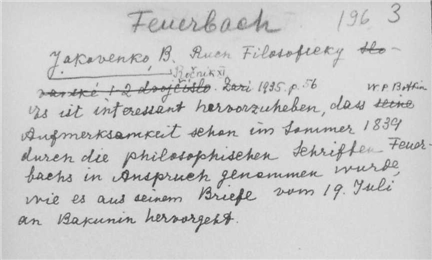 Feuerbach 196 3
Jakovenko, B. Ruch Filosofický Slo-
Ročník XI
vanské 1-2 dvojčíslo. Září 1935. p. 56 W. P. Botkin
Es ist interessant hervorzuheben, dass seine
Aufmerksamkeit schon im Sommer 1839
durch die philosophischen Schriften Feuer-
bachs in Anspruch genommen wurde,
wie es aus seinem Briefe vom 19. Juli
an Bakunin hervorgeht.